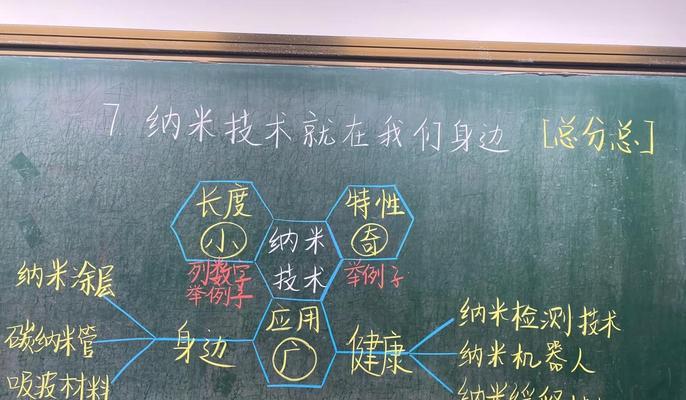 7 纳米技术就在我们身边 [总分总]
长度
小
特性
奇
纳米
技术
列数字
举例子
举例子
纳米涂层
碳纳米管
吸波材料
身边
应用
广
健康
纳米检测技术
纳米机器人
纳米缓释